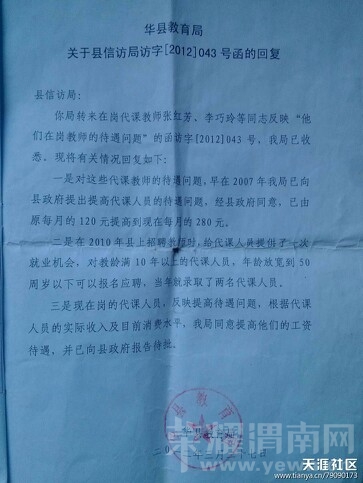 华县教育局
关于县信访局访字[2012]043号函的回复
县信访局:
你局转来在岗代课教师张红芳、李巧玲等同志反映“他
们在岗教师的待遇问题”的函访字[2012]043 号,我局已收
悉。现将有关情况回复如下:
一是对这些代课教师的待遇问题,早在2007年我局已向
县政府提出提高代课人员的待遇问题,经县政府同意,已由
原每月的120元提高到现在每月的280元。
二是在2010年县上招聘教师时,给代课人员提供了一次
就业机会,对教龄满10年以上的代课人员,年龄放宽到50
周岁以下可以报名应聘,当年就录取了两名代课人员。
三是现在岗的代课人员,反映提高待遇问题,根据代课
人员的实际收入及目前消费水平,我局同意提高他们的工资
待遇,并已向县政府报告待批。
教育
二〇
年三月二十七日
渭南网
www.yew
天涯社区
http://www.tianya.cn/79090173